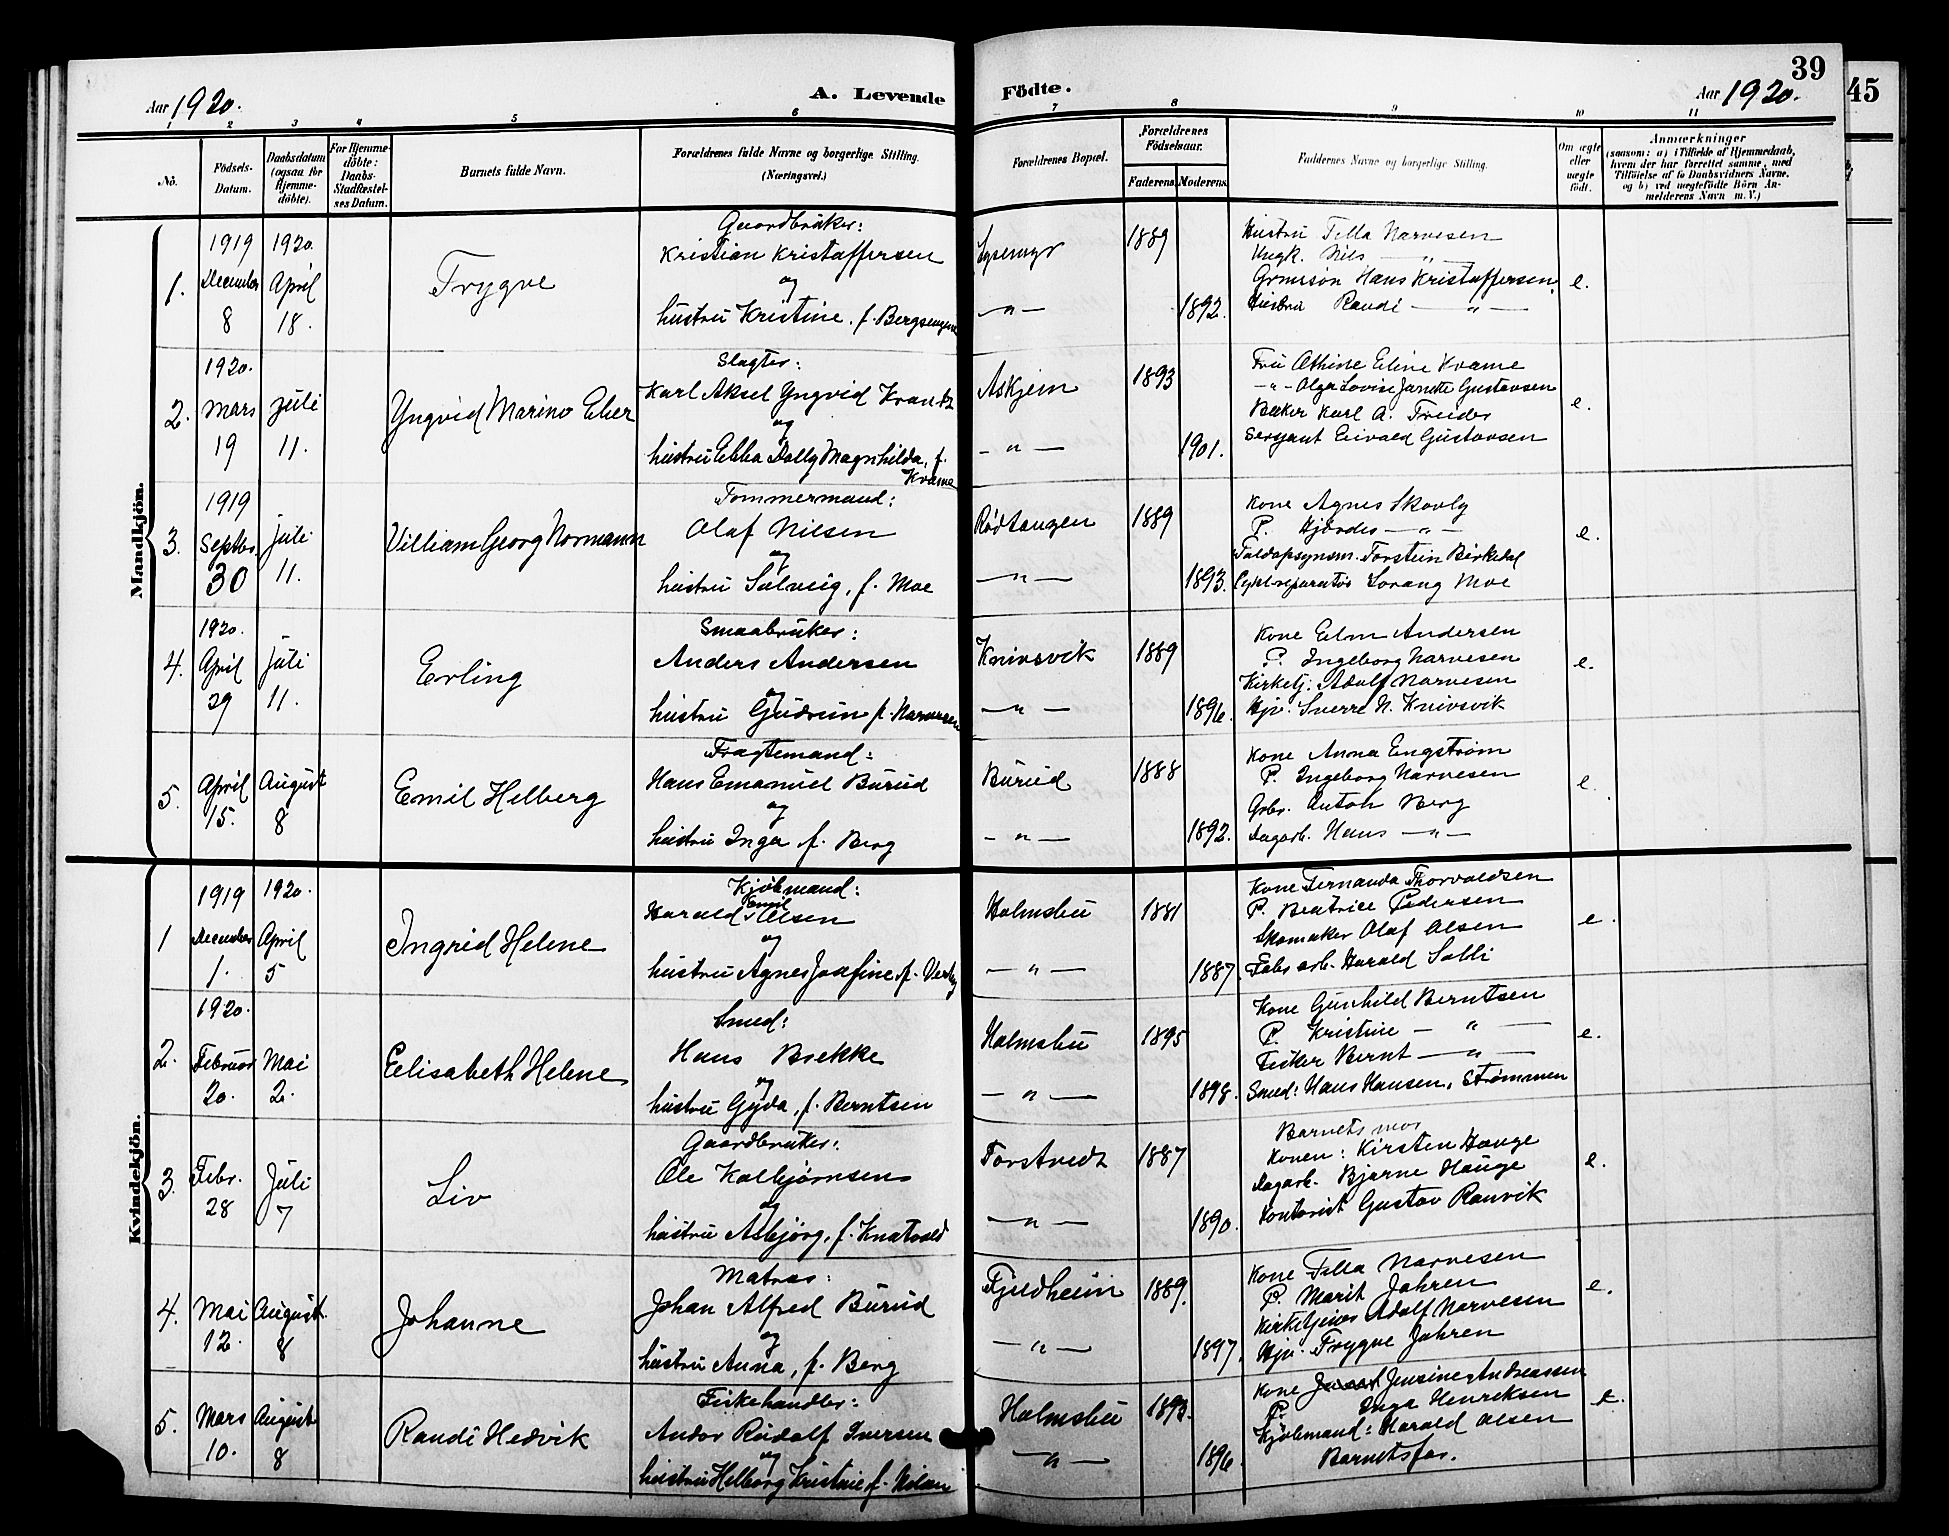 39
45
Aar 1920.
A. Levende
Födte.
Aar 1920.
1 2 3 4 5 6 7 8 9 10 11
No.
Födsels-
Datum.
Daabsdatum
(ogsaa for
Hjemme-
döbte).
For Hjemme-
döbte:
Daabs-
Stadfæstel-
ses Datum.
Barnets fulde Navn.
Forældrenes fulde Navne og borgerlige Stilling.
(Næringsvei.)
Forældrenes Bopæl.
Forældrenes
Födselsaar.
Faderens.
Moderens.
Faddernes Navne og borgerlige Stilling.
Om ægte
eller
uægte
født.
Anmærkninger
(saasom: a) i Tilfælde af Hjemmedaab,
hvem der har forrettet samme, med
Tilføielse af to Daabsvidners Navne,
og b) ved uægtefödte Börn An-
melderens Navn m. V.)
Mandkjön.
1.
1919
December
8
1920.
April
18.
Trygve
Gaardbruker:
Kristian Kristoffersen
og
hustru Kristine, f. Bergsengene
— " —
1889
1892.
Hustru Tella Narvesen
Ungk. Nils — " —
Hans Kristoffersen.
Hustru Randi — " —
e.
2.
1920.
Mars
19
Juli
11.
Yngvid Marino Eber
Slagter:
Karl Aksel Yngvid Krantz
og
hustru Ebba Dolly Magnhilda, f.
Kvame
Askjem
— " —
1893
1901.
Fru Athine Eline Kvame
— " — Olga Lovise Janette Gustavsen
Baker Karl A. Treider
Sersjant Eivald Gustavsen
e.
3.
1919
Septbr.
30
Juli
11.
Villiam Georg Normann
Tømmermand:
Olaf Nilsen
og
hustru Solveig, f. Moe
Rødtangen
— " —
1889
1893.
Kone Agnes Skovly
P. Hjørdis — " —
Toldopsynsm. Torstein Birkedal
Cykelreparatør Lorang Moe
e.
4.
1920.
April
29
Juli
11.
Erling
Smaabruker:
Anders Andersen
og
hustru Gudrun f. Narvesen
Knivsvik
— " —
1889
1896.
Kone Elm Andersen
P. Ingeborg Narvesen
Kirketj. Adolf Narvesen
Ugv. Sverre N. Knivsvik
e.
5.
April
15.
August
8
Emil Helberg
Fragtemand:
Hans Emanuel Burud
og
hustru Inga f. Berg
Burud
— " —
1888
1892.
Kone Anna Engstrøm
P. Ingeborg Narvesen
Grbr. Anton Berg
Dagarb. Hans — " —
e.
Kvindekjön.
1
1919
December
1.
1920.
April
5
Ingrid Helene
Kjøbmand:
Harald Emil Olsen
og
hustru Agnes Josefine f. Verby
Holmsbu
— " —
1881
1887.
Kone Fernanda Thorvaldsen
P. Beatrice Pedersen
Skomaker Olaf Olsen
Fabr. arb. Harald Solli
e.
2.
1920.
Februar
20.
Mai
2.
Eelisabeth Helene
Smed:
Hans Brekke
og
hustru Gyda, f. Berntsen
Holmsbu
— " —
1895
1898.
Kone Gunhild Berntsen
P. Kristine — " —
Fisker Bernt — " —
Smed: Hans Hansen, Strømmen
e.
3.
Febr.
28
Juli
7
Liv
Gaardbruker:
Ole Kolbjørnsen
og
hustru Asbjørg, f. Knatvold
Torstvedt
— " —
1887
1890.
Barnets mor
Konen: Kirsten Hauge
Dagarb. Bjarne Hauge
Kontorist Gustav Ranvik
e.
4.
Mai
12.
August
8
Johanne
Matros:
Johan Alfred Burud
og
hustru Anna, f. Berg
Fjeldheim
— " —
1889.
1897.
Kone Tella Narvesen
P. Marit Jahren
Kirketjener Adolf Narvesen
Ugv. Trygve Jahren
e.
5.
Mars
10.
August
8
Randi Hedvik
Fiskehandler:
Andor Rudolf Iversen
og
hustru Helborg Kristine f. Nilsen
Holmsbu
— " —
1893.
1896.
Kone Jensine Andreassen
P. Inga Henriksen
Kjøbmand: Harald Olsen
Barnets far.
e.